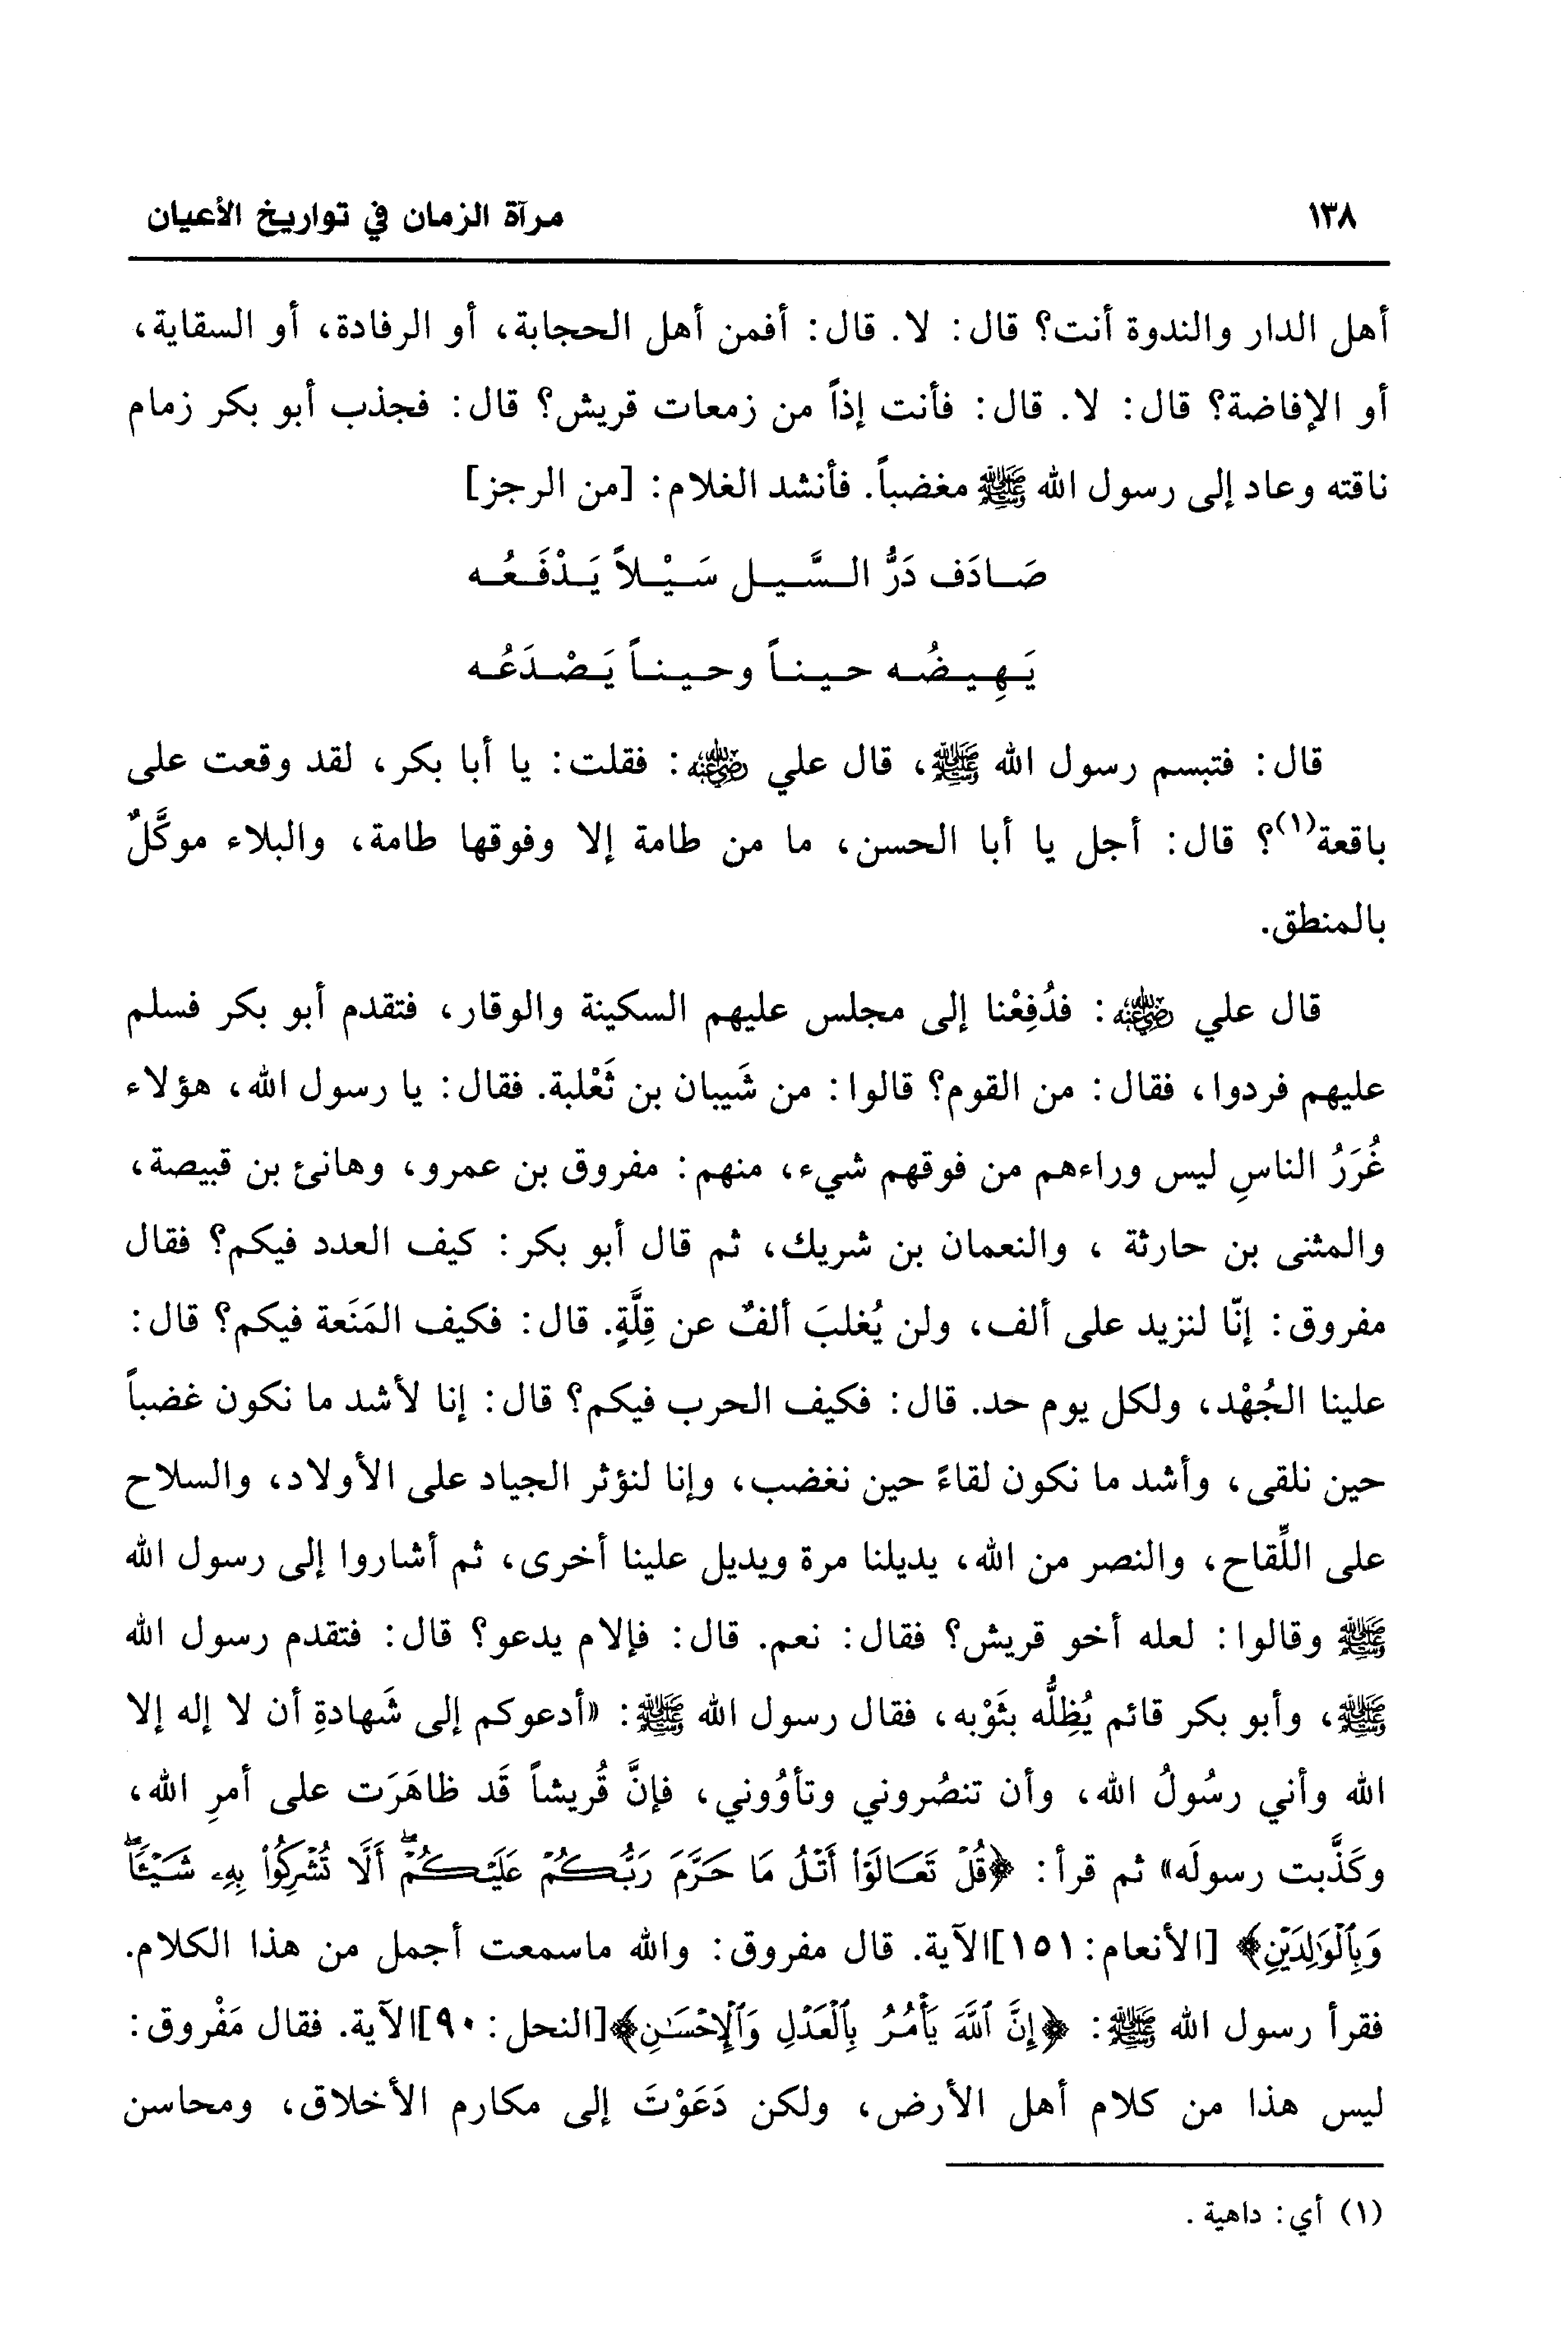 ١٣٨ مرآة الزمان في تواريخ الأعيان
أهل الدار والندوة أنت؟ قال: لا. قال: أفمن أهل الحجابة، أو الرفادة، أو السقاية،
أو الإفاضة؟ قال: لا. قال: فأنت إذاً من زمعات قريش؟ قال: فجذب أبو بكر زمام
ناقته وعاد إلى رسول الله ﷺ مغضباً. فأنشد الغلام: [من الرجز]
صَادَف دَرُّ السَّيل سَيْلاً يَدْفَعُه
يَهِيضُه حيناً وحيناً يَصْدَعُه
قال: فتبسم رسول الله ﷺ، قال علي رضي الله عنه: فقلت: يا أبا بكر، لقد وقعت على
باقعة(١)؟ قال: أجل يا أبا الحسن، ما من طامة إلا وفوقها طامة، والبلاء موكَّلٌ
بالمنطق.
قال علي رضي الله عنه: فدُفِعْنا إلى مجلس عليهم السكينة والوقار، فتقدم أبو بكر فسلم
عليهم فردوا، فقال: من القوم؟ قالوا: من شَيبان بن ثَعْلبة. فقال: يا رسول الله، هؤلاء
غُرَرُ الناسِ ليس وراءهم من فوقهم شيء، منهم: مفروق بن عمرو، وهانئ بن قبيصة،
والمثنى بن حارثة ، والنعمان بن شريك، ثم قال أبو بكر: كيف العدد فيكم؟ فقال
مفروق: إنّا لنزيد على ألف، ولن يُغلبَ ألفٌ عن قِلَّةٍ. قال: فكيف المَنَعة فيكم؟ قال:
علينا الجُهْد، ولكل يوم حد. قال: فكيف الحرب فيكم؟ قال: إنا لأشد ما نكون غضباً
حين نلقى، وأشد ما نكون لقاءً حين نغضب، وإنا لنؤثر الجياد على الأولاد، والسلاح
على اللِّقاح، والنصر من الله، يديلنا مرة ويديل علينا أخرى، ثم أشاروا إلى رسول الله
ﷺ وقالوا: لعله أخو قريش؟ فقال: نعم. قال: فإلام يدعو؟ قال: فتقدم رسول الله
ﷺ، وأبو بكر قائم يُظِلُّه بثَوْبه، فقال رسول الله ﷺ: «أدعوكم إلى شَهادةِ أن لا إله إلا
الله وأني رسُولُ الله، وأن تنصُروني وتأوُوني، فإنَّ قُريشاً قَد ظاهَرَت على أمرِ الله،
وكَذَّبت رسولَه» ثم قرأ: ﴿قُلْ تَعَالَوْاْ أَتْلُ مَا حَرَّمَ رَبُّكُمْ عَلَيْكُمْ أَلَّا تُشْرِكُواْ بِهِۦ شَيْـًٔا
وَبِٱلْوَٰلِدَيْنِ﴾ [الأنعام: ١٥١]الآية. قال مفروق: والله ماسمعت أجمل من هذا الكلام.
فقرأ رسول الله ﷺ: ﴿إِنَّ ٱللَّهَ يَأْمُرُ بِٱلْعَدْلِ وَٱلْإِحْسَٰنِ﴾[النحل: ٩٠]الآية. فقال مَفْروق:
ليس هذا من كلام أهل الأرض، ولكن دَعَوْتَ إلى مكارم الأخلاق، ومحاسن
(١) أي: داهية .